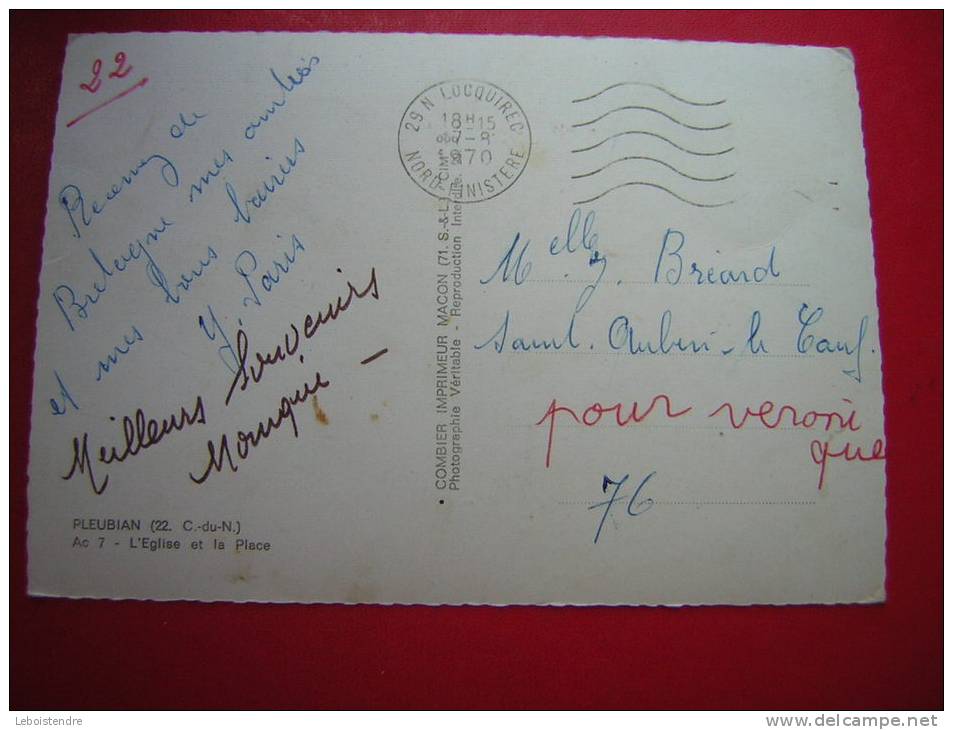 22
Recevez de
Bretagne mes amitiés
et mes bons baisers
Y. Paris
Meilleurs Souvenirs
Monique
PLEUBIAN (22. C.-du-N.)
Ac 7 - L'Eglise et la Place
29 N LOCQUIREC
18H15
7-8
1970
NORD-FINISTERE
• COMBIER IMPRIMEUR MACON (71. S.-&-L.) "CIM"
Photographie Véritable - Reproduction Interdite.
Melle J. Bréard
Saint. Aubin-le Cauf.
pour veroni
que
76
Leboistendre
www.delcampe.net